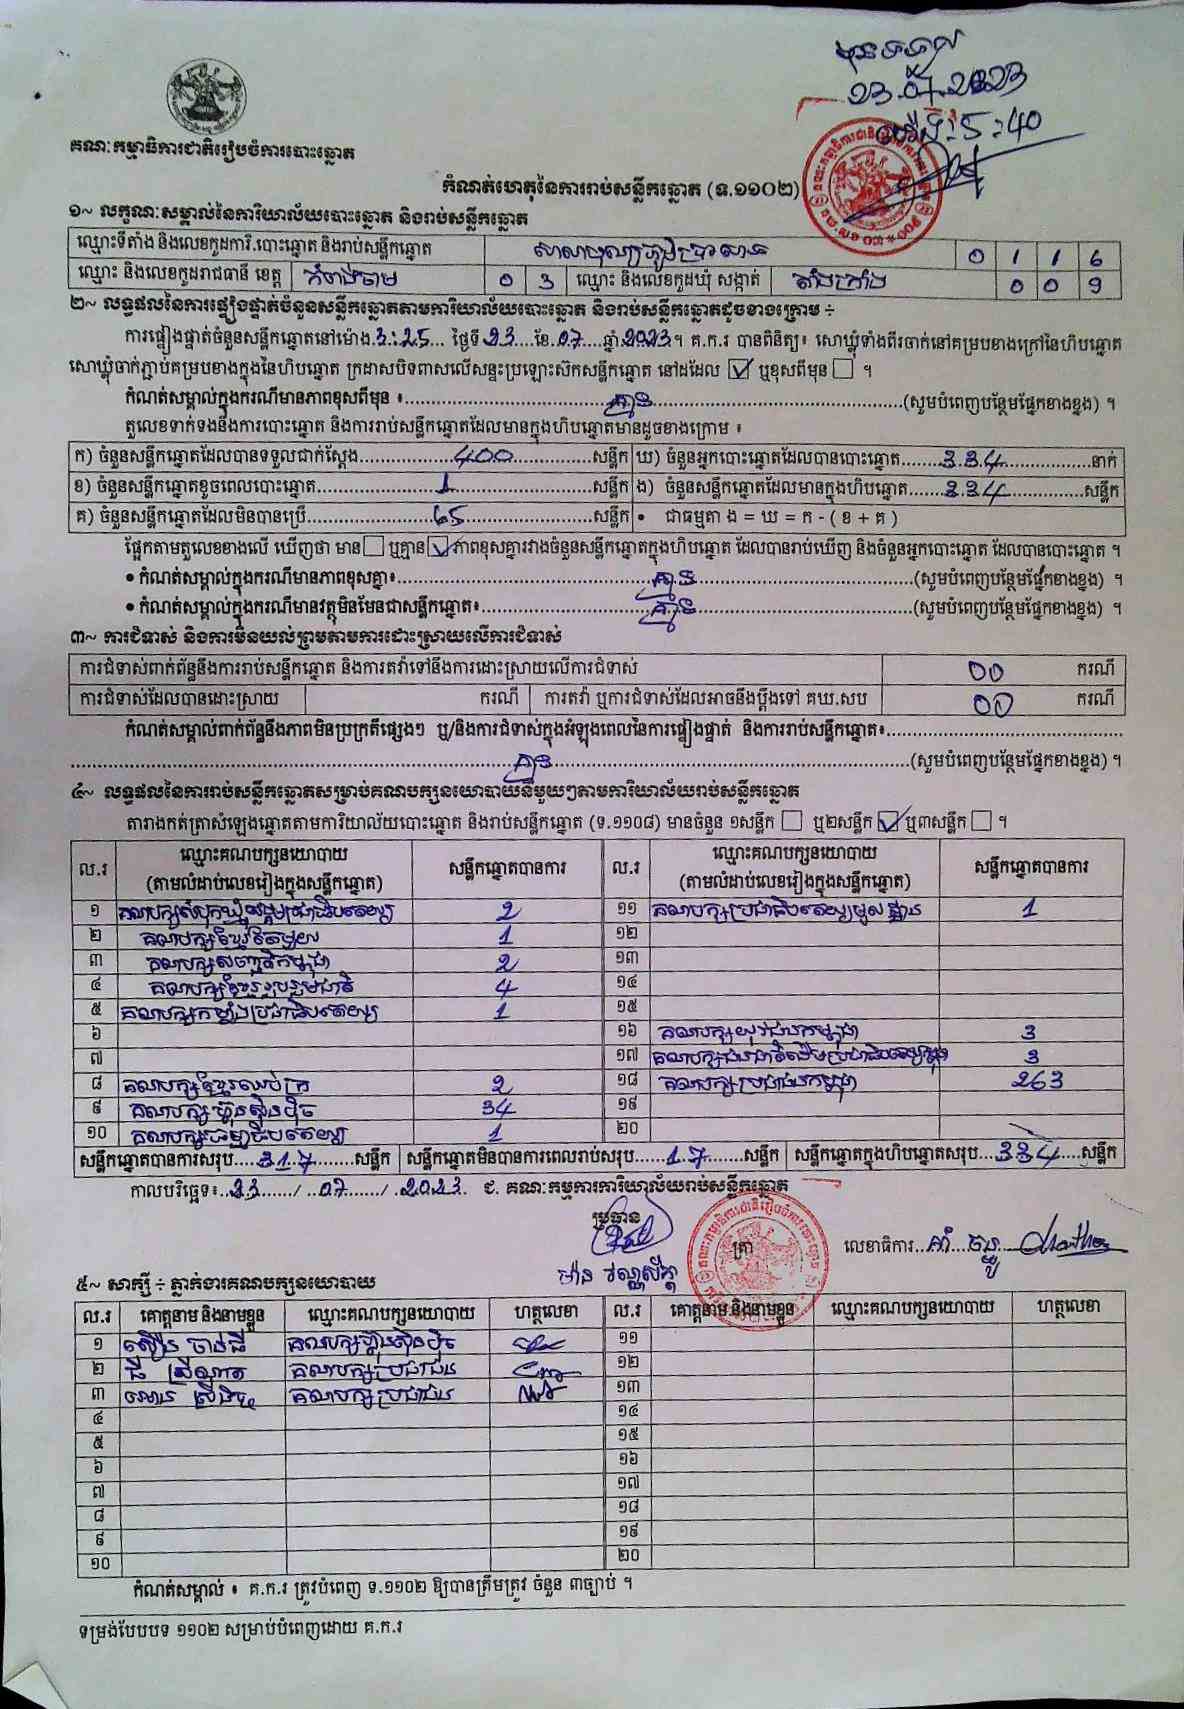 បានទទួល
23.07.2023
ម៉ោង 15:40
គណៈកម្មាធិការជាតិរៀបចំការបោះឆ្នោត
កំណត់ហេតុនៃការរាប់សន្លឹកឆ្នោត (ទ.១១០២)
១~ លក្ខណៈសម្គាល់នៃការិយាល័យបោះឆ្នោត និងរាប់សន្លឹកឆ្នោត
ឈ្មោះទីតាំង និងលេខកូដការិ.បោះឆ្នោត និងរាប់សន្លឹកឆ្នោត សាលាបុណ្យភូមិប្រាសាទ 0 1 1 6
ឈ្មោះ និងលេខកូដរាជធានី ខេត្ត កំពង់ចាម 0 3 ឈ្មោះ និងលេខកូដឃុំ សង្កាត់ តាំងក្រាំង 0 0 9
២~ លទ្ធផលនៃការផ្ទៀងផ្ទាត់ចំនួនសន្លឹកឆ្នោតតាមការិយាល័យបោះឆ្នោត និងរាប់សន្លឹកឆ្នោតដូចខាងក្រោម ÷
ការផ្ទៀងផ្ទាត់ចំនួនសន្លឹកឆ្នោតនៅម៉ោង.3:25... ថ្ងៃទី.23....ខែ.07.....ឆ្នាំ.2023.។ គ.ក.រ បានពិនិត្យ៖ សោឃ្លុំទាំងពីរចាក់នៅគម្របខាងក្រៅនៃហិបឆ្នោត
សោឃ្លុំចាក់ភ្ជាប់គម្របខាងក្នុងនៃហិបឆ្នោត ក្រដាសបិទពាសលើសន្ទះប្រឡោះស៊កសន្លឹកឆ្នោត នៅដដែល ☑ ឬខុសពីមុន ☐ ។
កំណត់សម្គាល់ក្នុងករណីមានភាពខុសពីមុន ៖.......គ្មាន.......(សូមបំពេញបន្ថែមផ្នែកខាងខ្នង) ។
តួលេខទាក់ទងនឹងការបោះឆ្នោត និងការរាប់សន្លឹកឆ្នោតដែលមានក្នុងហិបឆ្នោតមានដូចខាងក្រោម ៖
ក) ចំនួនសន្លឹកឆ្នោតដែលបានទទួលជាក់ស្តែង.......400.......សន្លឹក ឃ) ចំនួនអ្នកបោះឆ្នោតដែលបានបោះឆ្នោត.......334.......នាក់
ខ) ចំនួនសន្លឹកឆ្នោតខូចពេលបោះឆ្នោត.......1.......សន្លឹក ង) ចំនួនសន្លឹកឆ្នោតដែលមានក្នុងហិបឆ្នោត.......334.......សន្លឹក
គ) ចំនួនសន្លឹកឆ្នោតដែលមិនបានប្រើ.......65.......សន្លឹក • ជាធម្មតា ង = ឃ = ក - ( ខ + គ )
ផ្អែកតាមតួលេខខាងលើ ឃើញថា មាន ☐ ឬគ្មាន ☑ ភាពខុសគ្នារវាងចំនួនសន្លឹកឆ្នោតក្នុងហិបឆ្នោត ដែលបានរាប់ឃើញ និងចំនួនអ្នកបោះឆ្នោត ដែលបានបោះឆ្នោត ។
• កំណត់សម្គាល់ក្នុងករណីមានភាពខុសគ្នា៖.......គ្មាន.......(សូមបំពេញបន្ថែមផ្នែកខាងខ្នង) ។
• កំណត់សម្គាល់ក្នុងករណីមានវត្ថុមិនមែនជាសន្លឹកឆ្នោត៖.......គ្មាន.......(សូមបំពេញបន្ថែមផ្នែកខាងខ្នង) ។
៣~ ការជំទាស់ និងការមិនយល់ព្រមតាមការដោះស្រាយលើការជំទាស់
ការជំទាស់ពាក់ព័ន្ធនឹងការរាប់សន្លឹកឆ្នោត និងការតវ៉ាទៅនឹងការដោះស្រាយលើការជំទាស់ 00 ករណី
ការជំទាស់ដែលបានដោះស្រាយ ករណី ការតវ៉ា ឬការជំទាស់ដែលអាចនឹងប្តឹងទៅ គឃ.សប 00 ករណី
កំណត់សម្គាល់ពាក់ព័ន្ធនឹងភាពមិនប្រក្រតីផ្សេងៗ ឬ/និងការជំទាស់ក្នុងអំឡុងពេលនៃការផ្ទៀងផ្ទាត់ និងការរាប់សន្លឹកឆ្នោត៖.......
.......គ្មាន.......(សូមបំពេញបន្ថែមផ្នែកខាងខ្នង) ។
៤~ លទ្ធផលនៃការរាប់សន្លឹកឆ្នោតសម្រាប់គណបក្សនយោបាយនីមួយៗតាមការិយាល័យរាប់សន្លឹកឆ្នោត
តារាងកត់ត្រាសំឡេងឆ្នោតតាមការិយាល័យបោះឆ្នោត និងរាប់សន្លឹកឆ្នោត (ទ.១១០៨) មានចំនួន ១សន្លឹក ☐ ឬ២សន្លឹក ☑ ឬ៣សន្លឹក ☐ ។
ល.រ ឈ្មោះគណបក្សនយោបាយ (តាមលំដាប់លេខរៀងក្នុងសន្លឹកឆ្នោត) សន្លឹកឆ្នោតបានការ ល.រ ឈ្មោះគណបក្សនយោបាយ (តាមលំដាប់លេខរៀងក្នុងសន្លឹកឆ្នោត) សន្លឹកឆ្នោតបានការ
១ គណបក្សសំបុកឃ្មុំសង្គមប្រជាធិបតេយ្យ 2 ១១ គណបក្សប្រជាធិបតេយ្យមូលដ្ឋាន 1
២ គណបក្សខ្មែរតែមួយ 1 ១២
៣ គណបក្សសញ្ជាតិកម្ពុជា 2 ១៣
៤ គណបក្សខ្មែររួបរួមជាតិ 4 ១៤
៥ គណបក្សកម្លាំងប្រជាធិបតេយ្យ 1 ១៥
៦ ១៦ គណបក្សយុវជនកម្ពុជា 3
៧ ១៧ គណបក្សជនជាតិដើមប្រជាធិបតេយ្យកម្ពុជា 3
៨ គណបក្សខ្មែរឈប់ក្រ 2 ១៨ គណបក្សប្រជាជនកម្ពុជា 263
៩ គណបក្សហ៊្វុនស៊ិនប៉ិច 34 ១៩
១០ គណបក្សធម្មាធិបតេយ្យ 1 ២០
សន្លឹកឆ្នោតបានការសរុប....317.......សន្លឹក សន្លឹកឆ្នោតមិនបានការពេលរាប់សរុប......17.......សន្លឹក សន្លឹកឆ្នោតក្នុងហិបឆ្នោតសរុប...334....សន្លឹក
កាលបរិច្ឆេទ៖..23....../ ..07....../ .2023. ជ. គណៈកម្មការការិយាល័យរាប់សន្លឹកឆ្នោត
ប្រធាន
ត្រា
លេខាធិការ
ម៉ាន វណ្ណស័ក្តា
៥~ សាក្សី ÷ ភ្នាក់ងារគណបក្សនយោបាយ
ល.រ គោត្តនាម និងនាមខ្លួន ឈ្មោះគណបក្សនយោបាយ ហត្ថលេខា ល.រ គោត្តនាម និងនាមខ្លួន ឈ្មោះគណបក្សនយោបាយ ហត្ថលេខា
១ គណបក្សហ៊្វុនស៊ិនប៉ិច ១១
២ គណបក្សប្រជាជន ១២
៣ គណបក្សប្រជាជន ១៣
៤ ១៤
៥ ១៥
៦ ១៦
៧ ១៧
៨ ១៨
៩ ១៩
១០ ២០
កំណត់សម្គាល់ ៖ គ.ក.រ ត្រូវបំពេញ ទ.១១០២ ឱ្យបានត្រឹមត្រូវ ចំនួន ៣ច្បាប់ ។
ទម្រង់បែបបទ ១១០២ សម្រាប់បំពេញដោយ គ.ក.រ